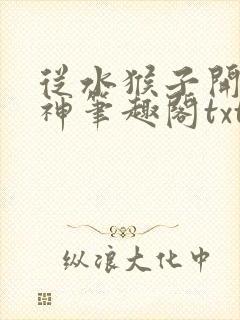 從水猴子開
神筆趣閣txt
纵浪大化中